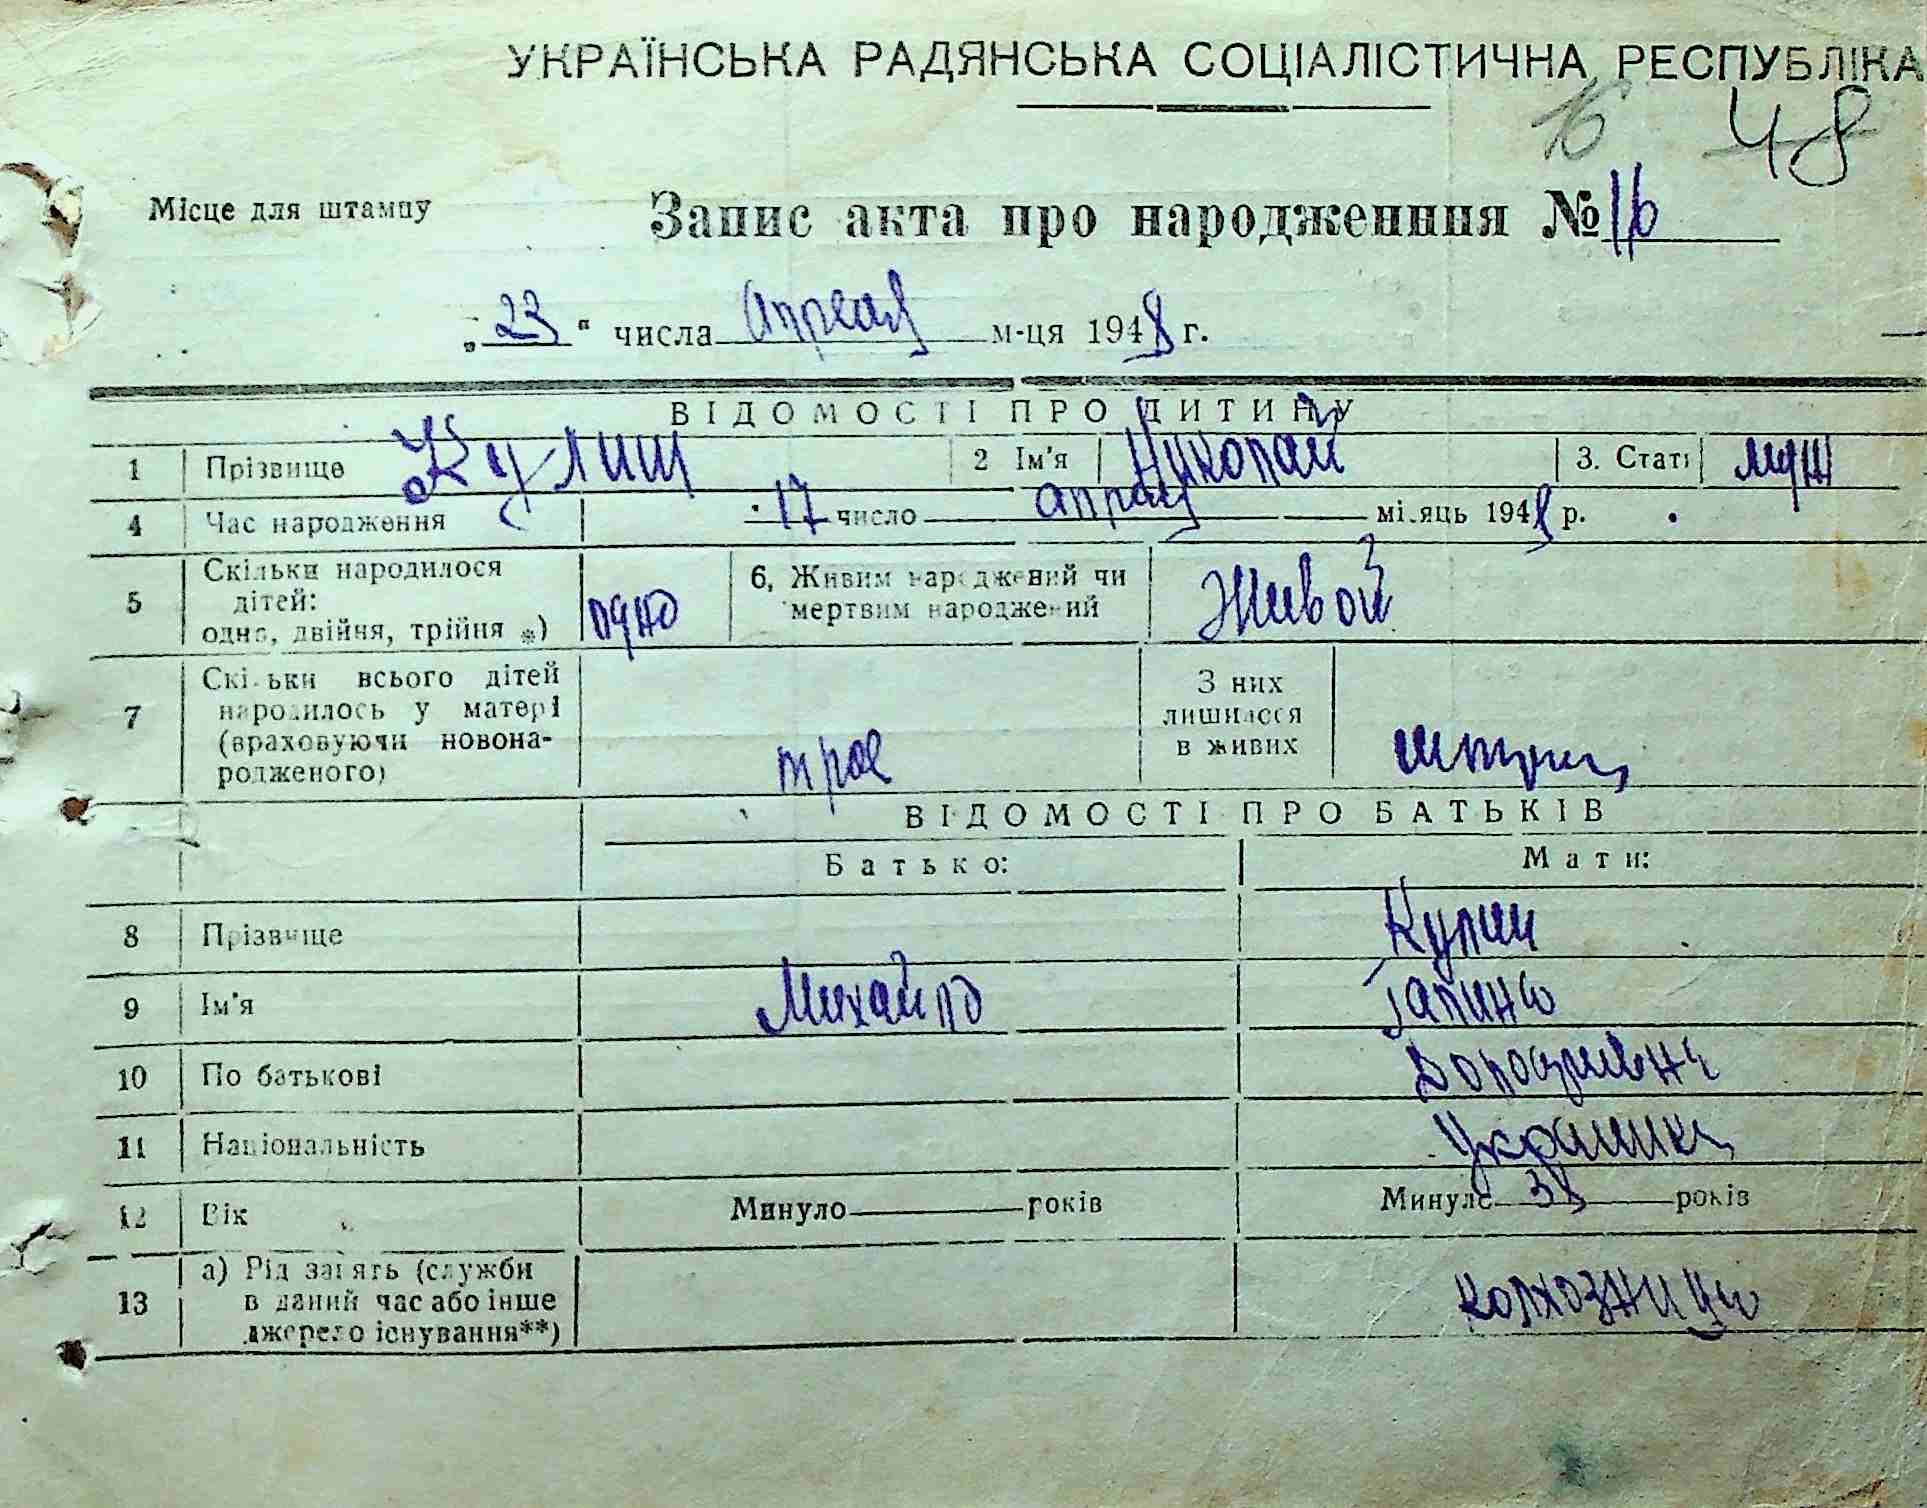 УКРАЇНСЬКА РАДЯНСЬКА СОЦІАЛІСТИЧНА РЕСПУБЛІКА
16 48
Місце для штампу
Запис акта про народженння № 16
„23“ числа Апреля м-ця 1948 г.
ВІДОМОСТІ ПРО ДИТИНУ
1 Прізвище Кулиш 2 Ім'я Николай 3. Стать муж
4 Час народження 17 число апреля місяць 1948 р.
5 Скільки народилося дітей: одно, двійня, трійня *) одно 6, Живим народжений чи мертвим народжений Живой
7 Скільки всього дітей народилось у матері (враховуючи новонародженого) трое З них лишилося в живих
ВІДОМОСТІ ПРО БАТЬКІВ
Батько: Мати:
8 Прізвище Кулиш
9 Ім'я Михайло Галина
10 По батькові
11 Національність Украинка
12 Вік Минуло років Минуло 38 років
13 а) Рід занять (служби в даний час або інше джерело існування**) колхозница